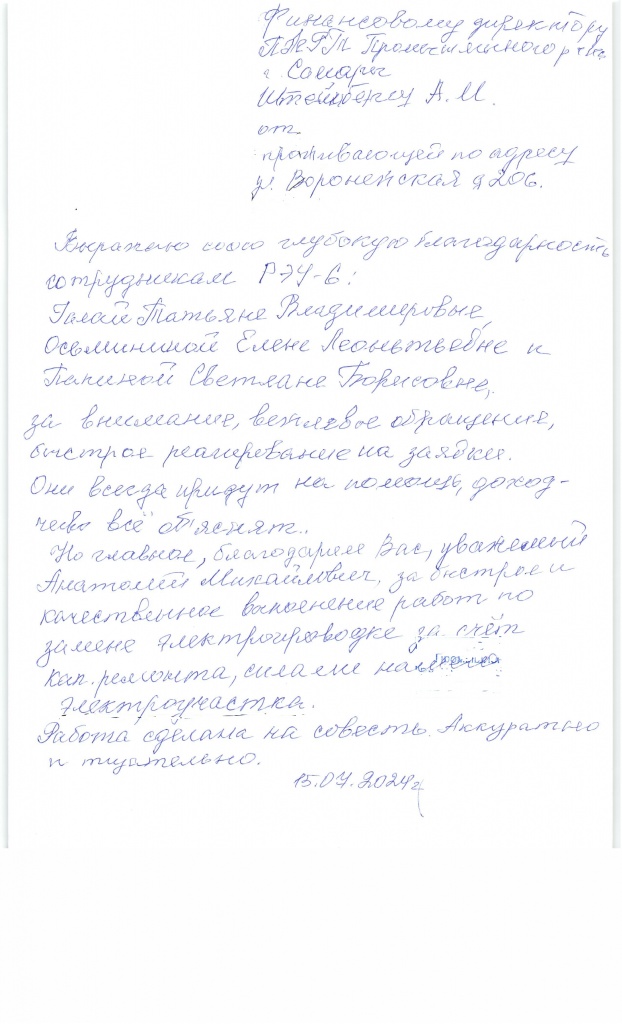 Финансовому директору
ПЖРТ Промышленного р-на
г. Самары
Штейнбергу А. М.
от
проживающей по адресу
ул. Воронежская д 206.
Выражаю свою глубокую благодарность
сотрудникам РЭУ-6:
Галай Татьяне Владимировне,
Осьмининой Елене Леонтьевне и
Папиной Светлане Борисовне,
за внимание, вежливое обращение,
быстрое реагирование на заявки.
Они всегда придут на помощь, доход-
чево всё объяснят.
Но главное, благодарим Вас, уважаемый
Анатолий Михайлович, за быстрое и
качественное выполнение работ по
замене электропроводке за счёт
кап. ремонта, силами
электроучастка.
Работа сделана на совесть. Аккуратно
и тщательно.
15.07.2024г